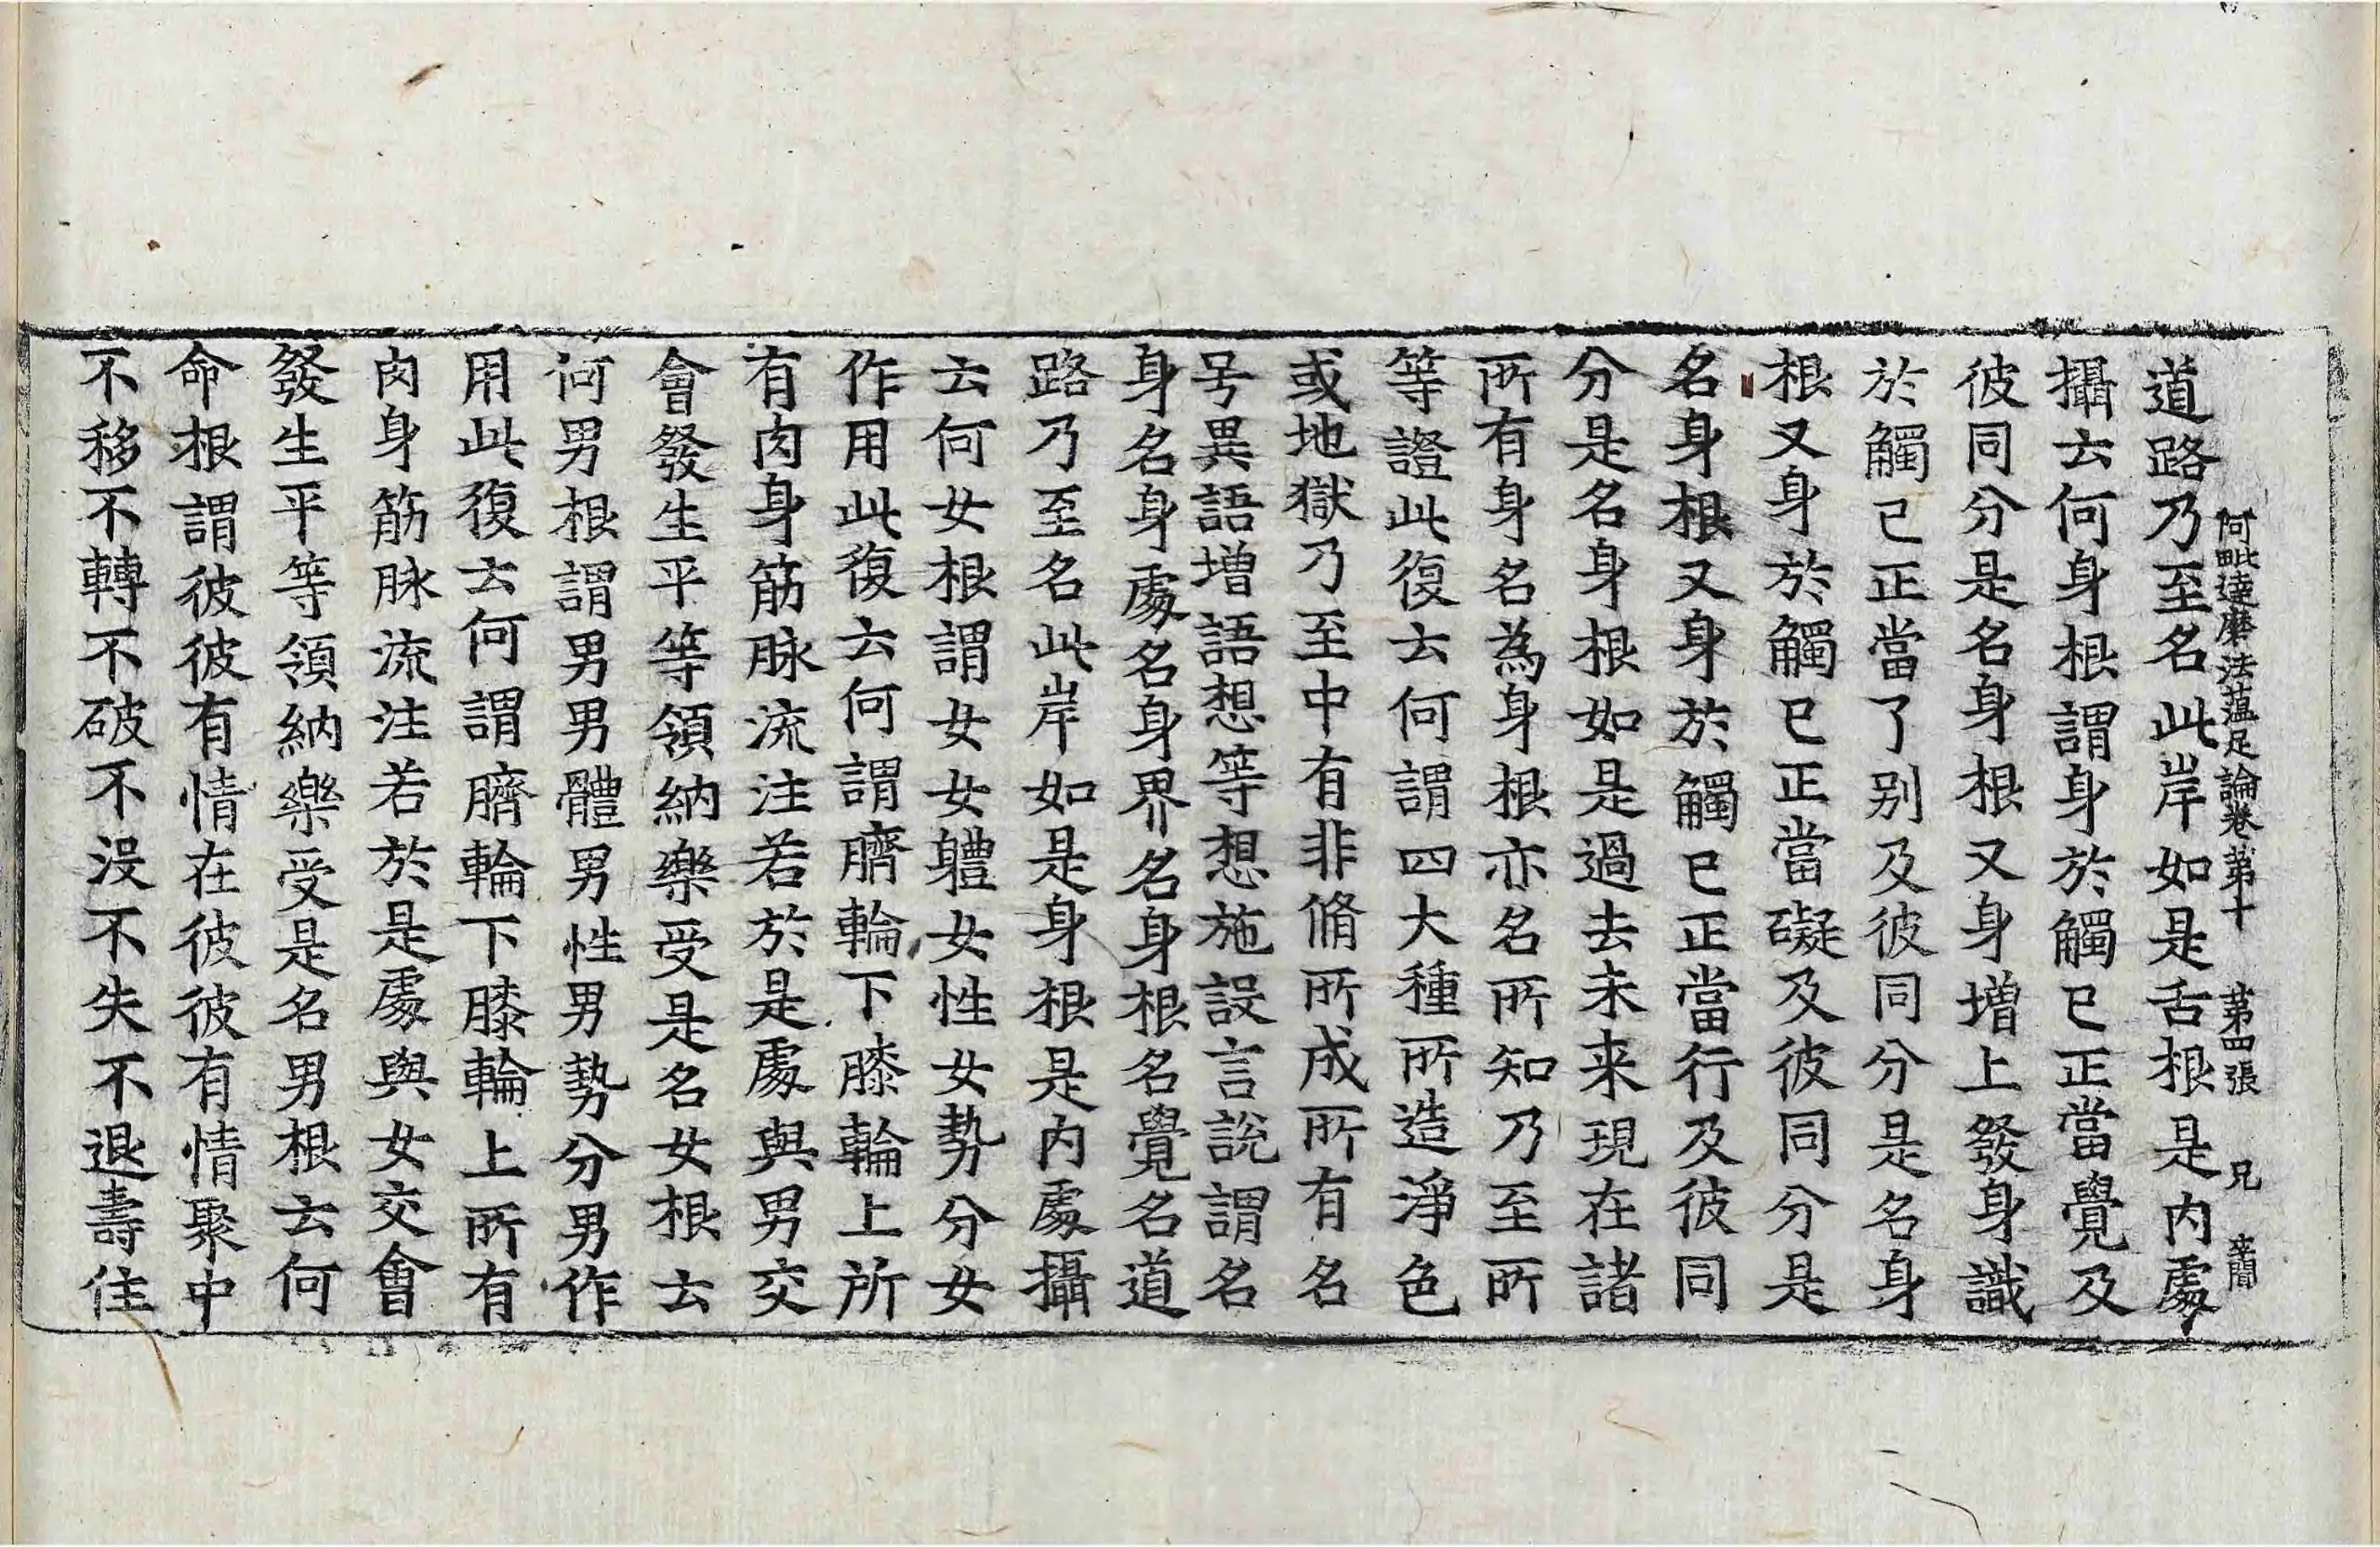 阿毗達磨法蘊足論卷第十 第四張 兄
道路乃至名此岸如是舌根是內處
攝云何身根謂身於觸已正當覺及
彼同分是名身根又身增上發身識
於觸已正當了别及彼同分是名身
根又身於觸已正當礙及彼同分是
名身根又身於觸已正當行及彼同
分是名身根如是過去未来現在諸
所有身名為身根亦名所知乃至所
等證此復云何謂四大種所造淨色
或地獄乃至中有非脩所成所有名
号異語增語想等想施設言說謂名
身名身處名身界名身根名覺名道
路乃至名此岸如是身根是內處攝
云何女根謂女女軆女性女勢分女
作用此復云何謂臍輪下膝輪上所
有肉身筋脉流注若於是處與男交
會發生平等領納樂受是名女根云
何男根謂男男體男性男勢分男作
用此復云何謂臍輪下膝輪上所有
肉身筋脉流注若於是處與女交會
發生平等領納樂受是名男根云何
命根謂彼彼有情在彼彼有情聚中
不移不轉不破不沒不失不退壽住